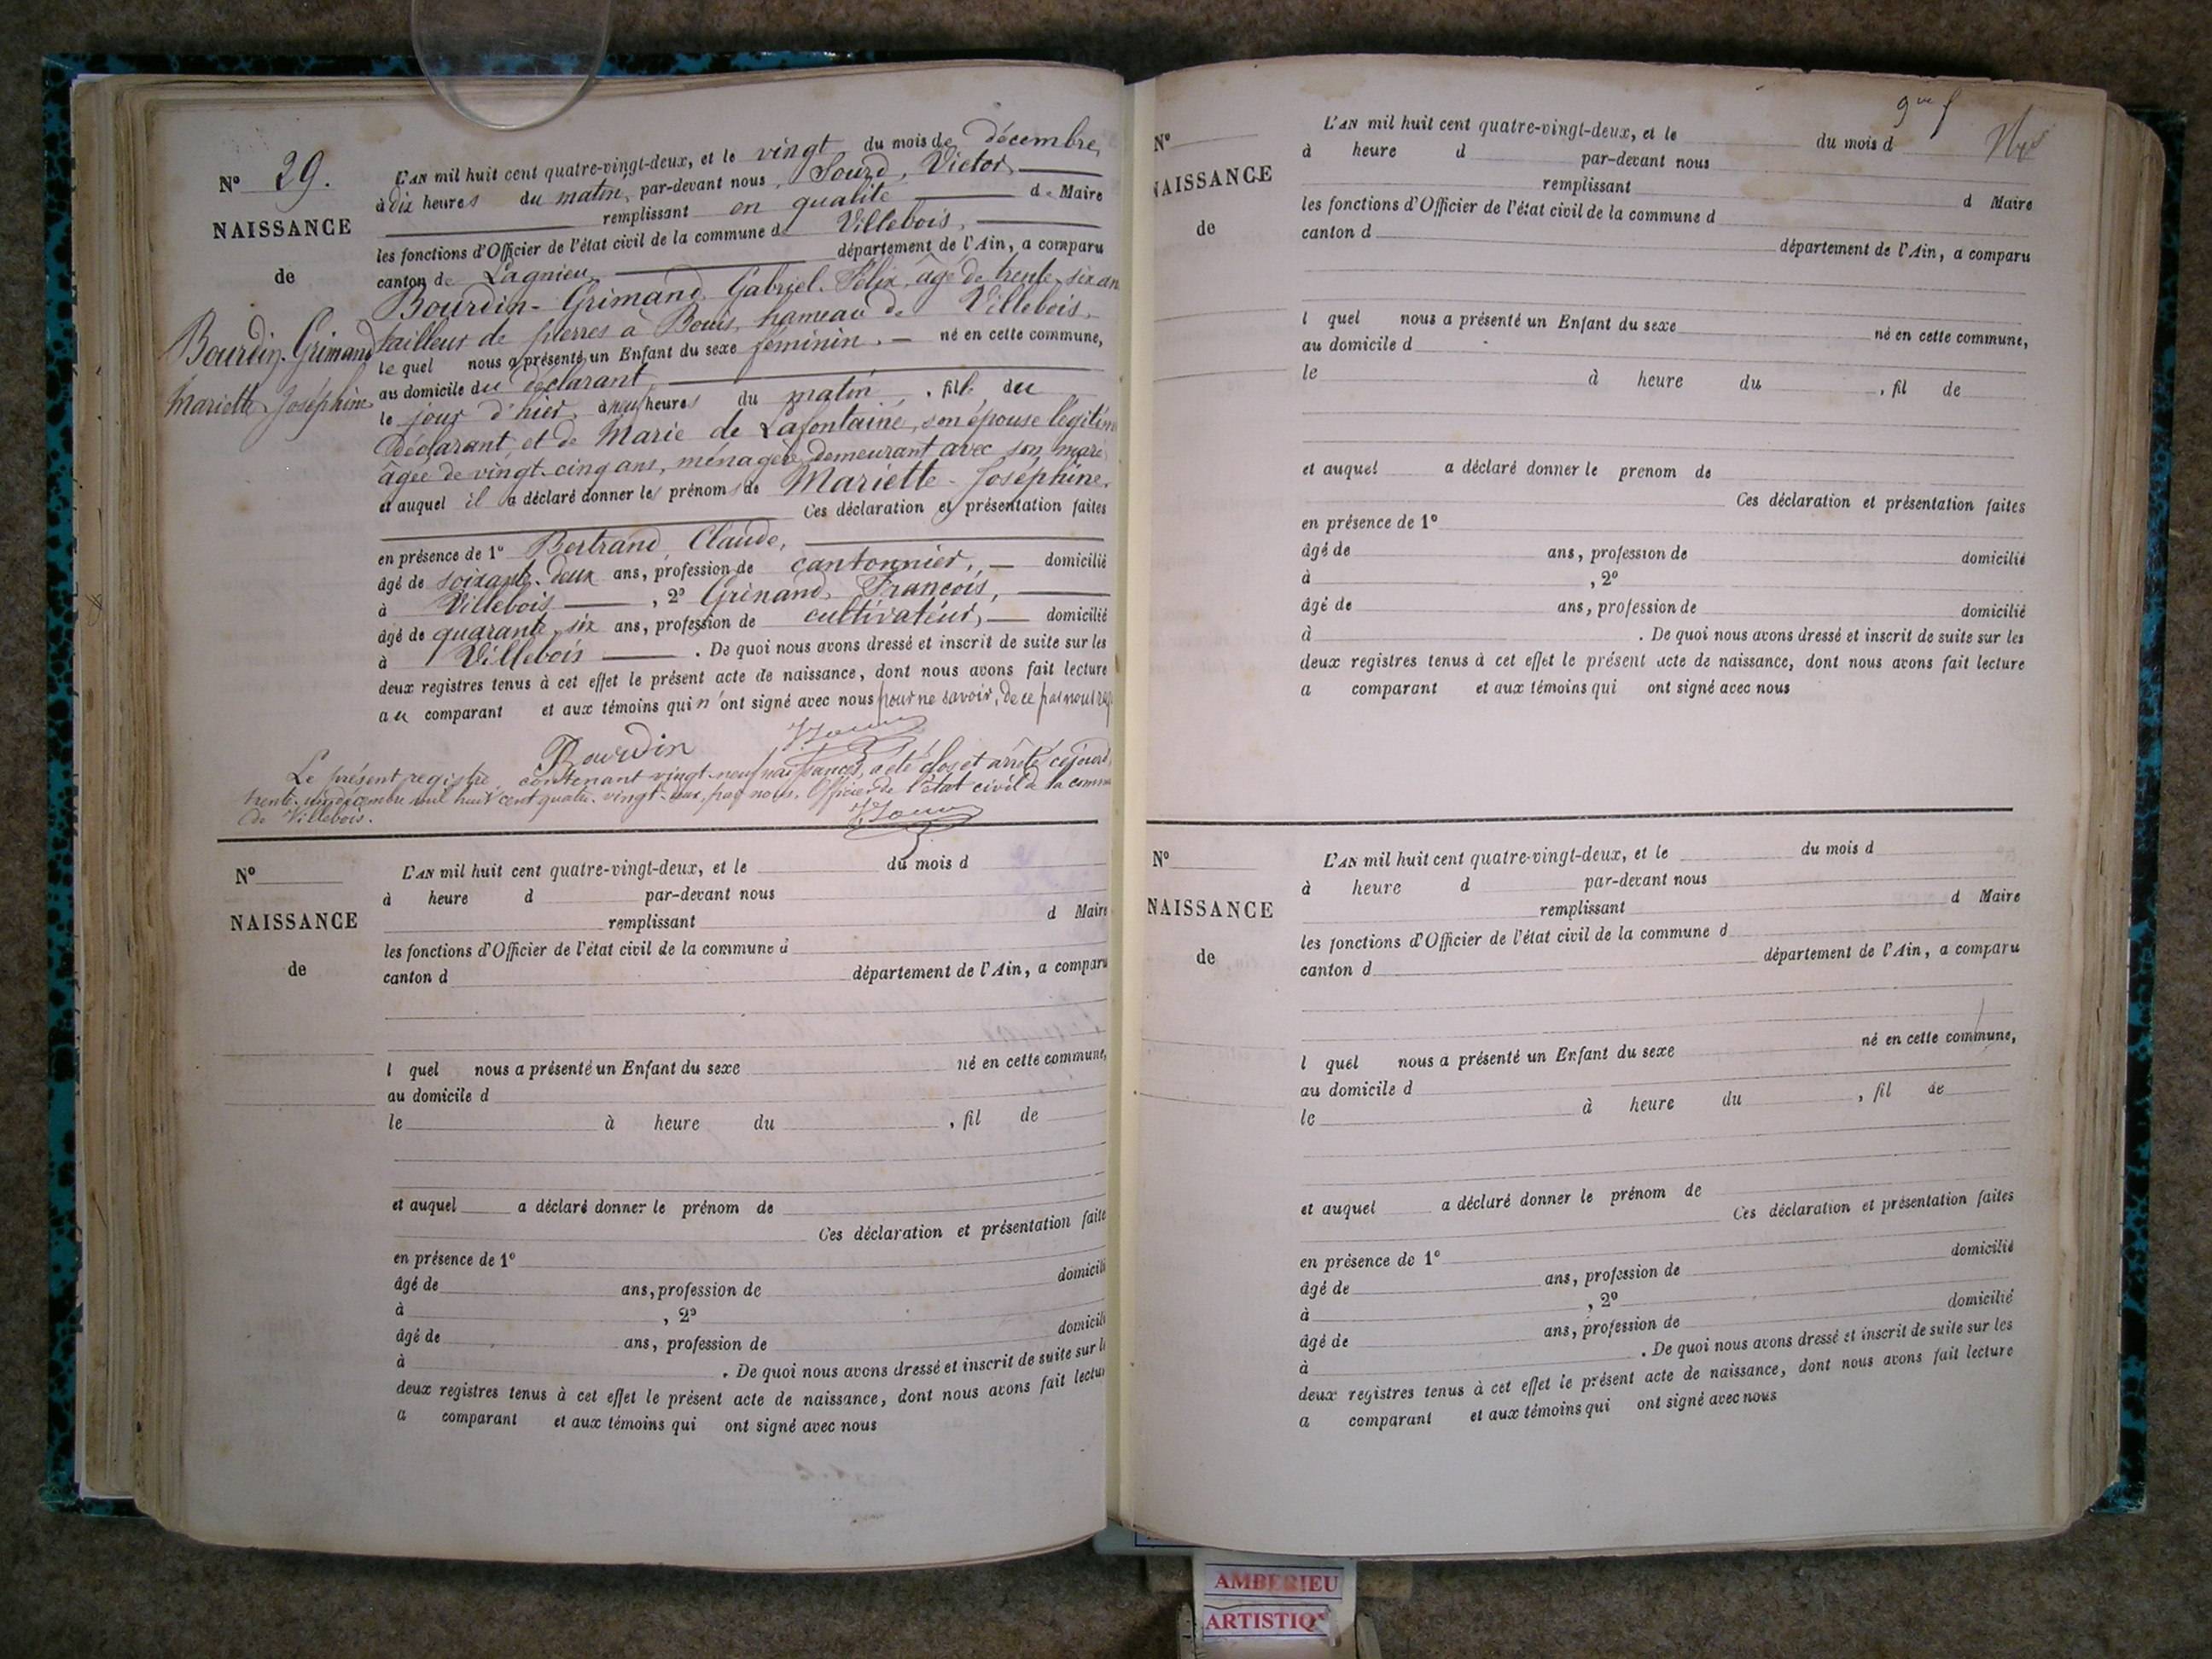 N° 29.
NAISSANCE
de
Bourdin-Grimand
Mariette Joséphine
L'AN mil huit cent quatre-vingt-deux, et le vingt du mois de décembre,
à dix heures du matin, par-devant nous, Sourd, Victor,
remplissant en qualité de Maire
les fonctions d'Officier de l'état civil de la commune de Villebois,
canton de Lagnieu département de l'Ain, a comparu
Bourdin-Grimand, Gabriel-Félix, âgé de trente-six an
tailleur de pierres à Bouis, hameau de Villebois,
lequel nous a présenté un Enfant du sexe féminin. né en cette commune,
au domicile du déclarant,
le jour d'hier, à neuf heures du matin, fille du
déclarant, et de Marie de Lafontaine, son épouse légitim
âgée de vingt-cinq ans, ménagère, demeurant avec son mari
et auquel il a déclaré donner les prénoms de Mariette-Joséphine.
Ces déclaration et présentation faites
en présence de 1° Bertrand, Claude,
âgé de soixante-deux ans, profession de cantonnier, domicilié
à Villebois, 2° Grinand, François,
âgé de quarante-six ans, profession de cultivateur, domicilié
à Villebois. De quoi nous avons dressé et inscrit de suite sur les
deux registres tenus à cet effet le présent acte de naissance, dont nous avons fait lecture
au comparant et aux témoins qui n'ont signé avec nous pour ne savoir, de ce par nous req
Bourdin
Le présent registre, contenant vingt-neuf naissances, a été clos et arrêté cejourd
trente-un décembre mil huit cent quatre-vingt-deux, par nous, Officier de l'état civil de la comm
de Villebois.
N°
NAISSANCE
de
L'AN mil huit cent quatre-vingt-deux, et le du mois d
à heure d par-devant nous
remplissant d Maire
les fonctions d'Officier de l'état civil de la commune d
canton d département de l'Ain, a comparu
l quel nous a présenté un Enfant du sexe né en cette commune,
au domicile d
le à heure du , fil de
et auquel a déclaré donner le prénom de
Ces déclaration et présentation faite
en présence de 1°
âgé de ans, profession de domicili
à , 2°
âgé de ans, profession de domicili
à . De quoi nous avons dressé et inscrit de suite sur l
deux registres tenus à cet effet le présent acte de naissance, dont nous avons fait lectu
a comparant et aux témoins qui ont signé avec nous
N°
NAISSANCE
de
L'AN mil huit cent quatre-vingt-deux, et le du mois d
à heure d par-devant nous
remplissant d Maire
les fonctions d'Officier de l'état civil de la commune d
canton d département de l'Ain, a comparu
l quel nous a présenté un Enfant du sexe né en cette commune,
au domicile d
le à heure du , fil de
et auquel a déclaré donner le prenom de
Ces déclaration et présentation faites
en présence de 1°
âgé de ans, profession de domicilié
à , 2°
âgé de ans, profession de domicilié
à . De quoi nous avons dressé et inscrit de suite sur les
deux registres tenus à cet effet le présent acte de naissance, dont nous avons fait lecture
a comparant et aux témoins qui ont signé avec nous
N°
NAISSANCE
de
L'AN mil huit cent quatre-vingt-deux, et le du mois d
à heure d par-devant nous
remplissant d Maire
les fonctions d'Officier de l'état civil de la commune d
canton d département de l'Ain, a comparu
l quel nous a présenté un Enfant du sexe né en cette commune,
au domicile d
le à heure du , fil de
et auquel a déclaré donner le prénom de
Ces déclaration et présentation faites
en présence de 1°
âgé de ans, profession de domicilié
à , 2°
âgé de ans, profession de domicilié
à . De quoi nous avons dressé et inscrit de suite sur les
deux registres tenus à cet effet le présent acte de naissance, dont nous avons fait lecture
a comparant et aux témoins qui ont signé avec nous
AMBERIEU
ARTISTIQ